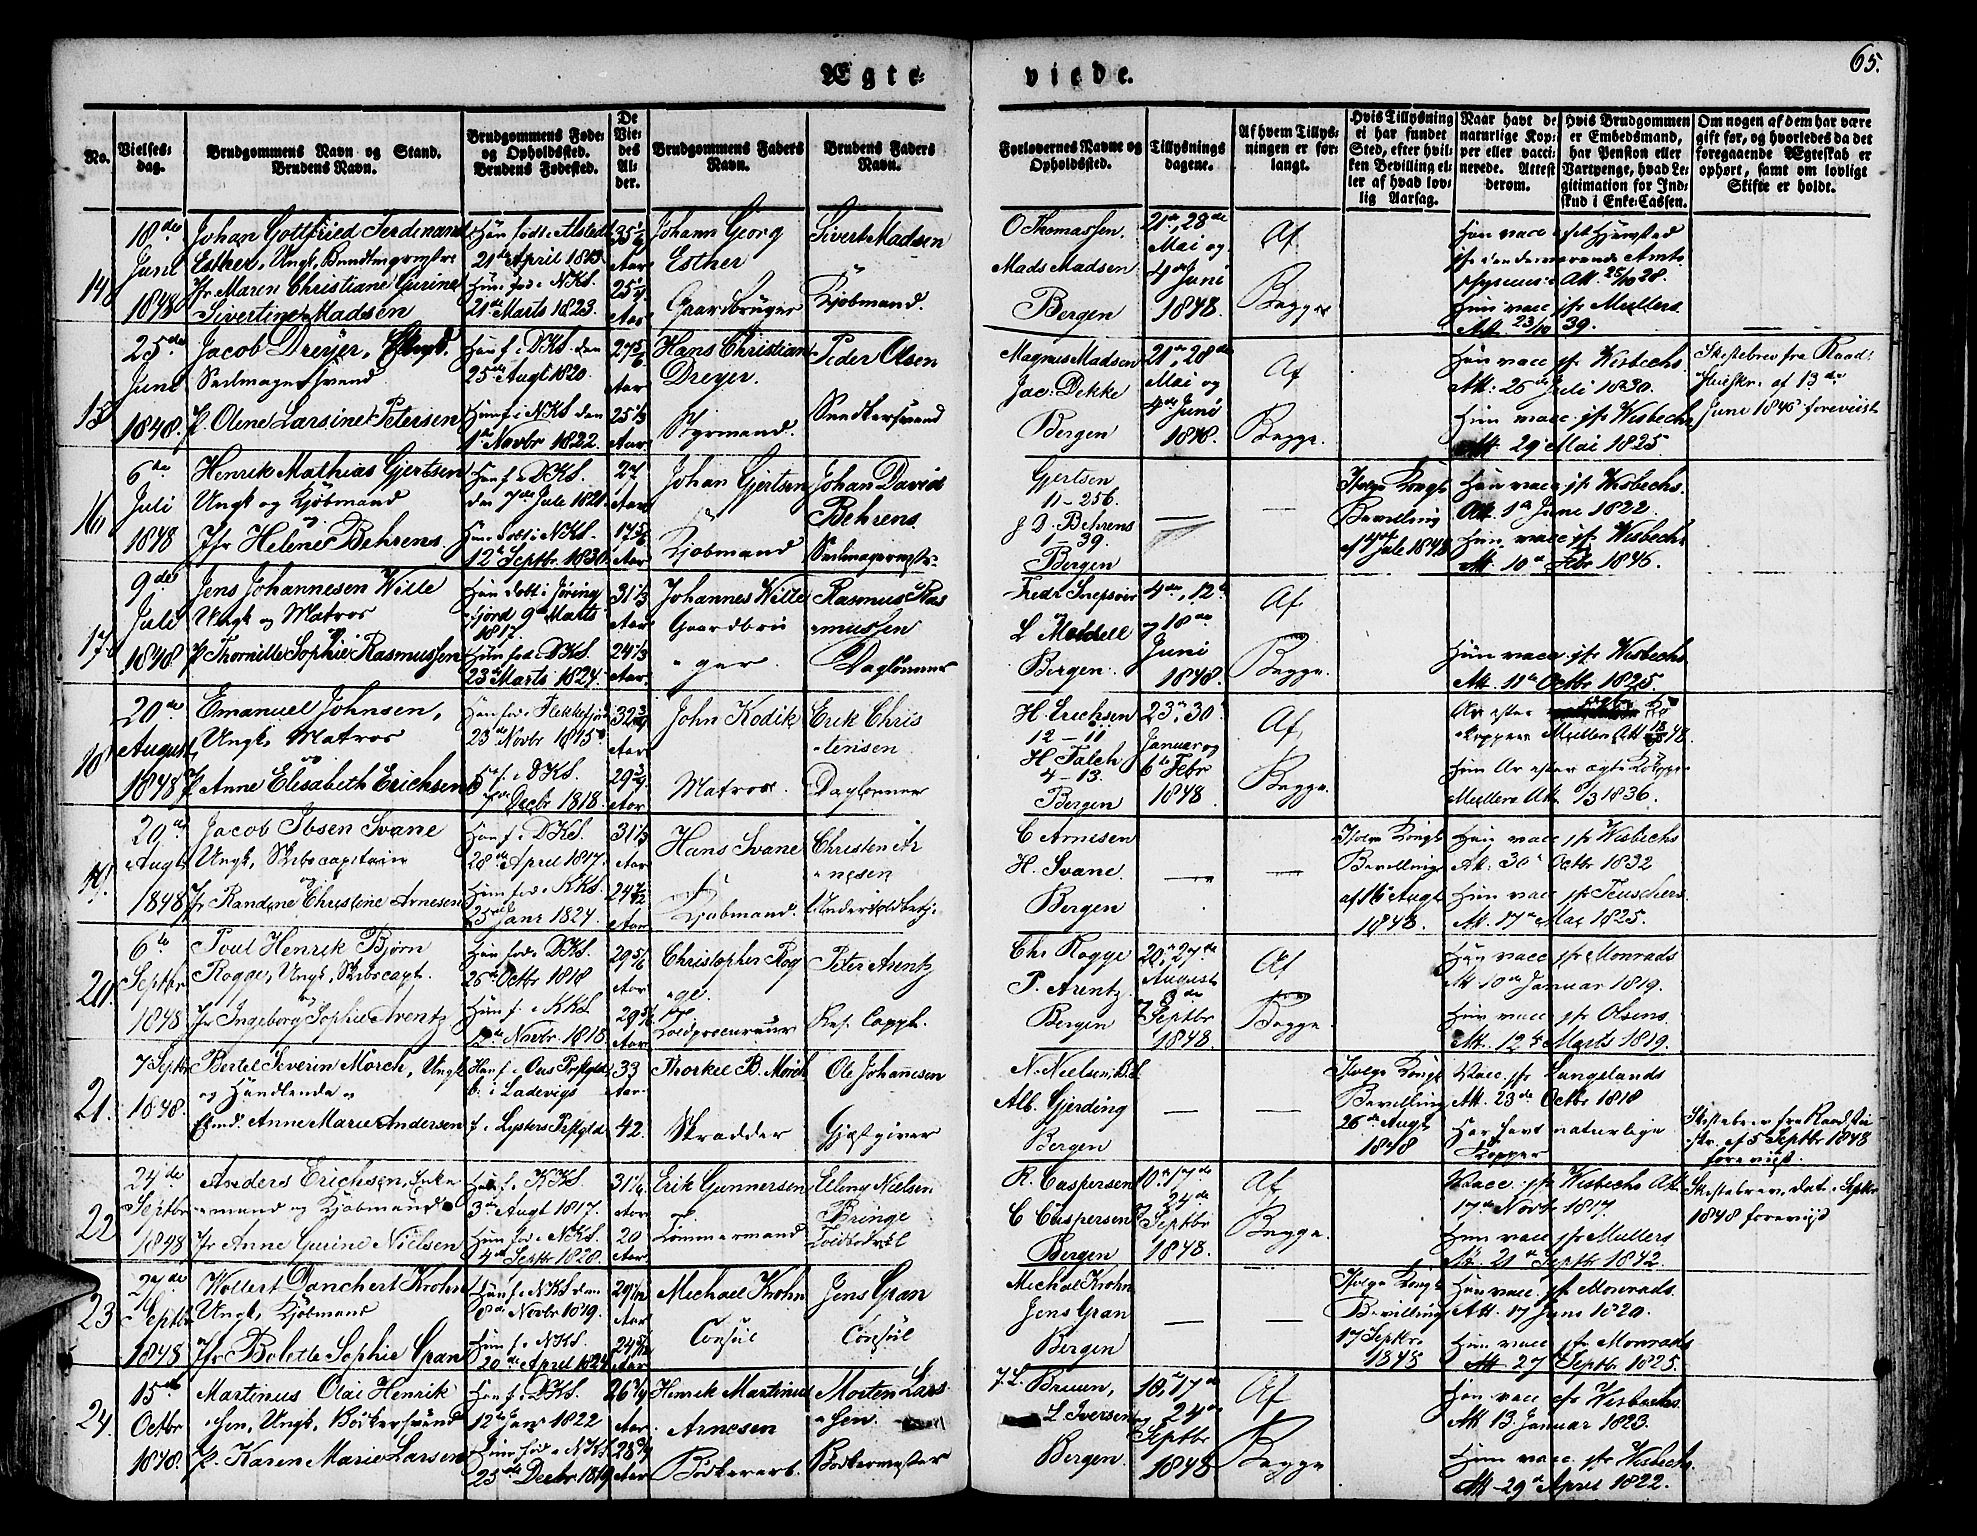 65.
Ægte-
viede.
No.
Vielses-
dag.
Brudgommens Navn og Stand.
Brudens Navn.
Brudgommens Føde-
og Opholdssted.
Brudens Fødested.
De
Vie-
des
Al-
der.
Brudgommens Faders
Navn.
Brudens Faders
Navn.
Forlovernes Navne og
Opholdssted.
Tillysnings
dagene.
Af hvem Tillys-
ningen er for-
langt.
Hvis Tillysning
ei har fundet
Sted, efter hvil-
ken Bevilling el-
ler af hvad lov-
lig Aarsag.
Naar havt de
naturlige Kop-
per eller vacci-
nerede. Attest
derom.
Hvis Brudgommen
er Embedsmand,
har Pension eller
Vartpenge, hvad Le-
gitimation for Ind-
skud i Enke-Cassen.
Om nogen af dem har være
gift før, og hvorledes da det
foregaaende Ægteskab er
ophørt, samt om lovligt
Skifte er holdt.
14
18de
Juni
1848
Johan Gottfried Ferdinand
Esther, Ungk,
Jfr Maren Christiane Gurine
Sivertine Madsen
21de April 1813
Hun fød i NKS.
21de Marts 1823.
Aar
25
Aar
Johann Georg
Esther
Gaardbruger
Sivert Madsen
Kjøbmand.
O Thomassen.
Mads Madsen
Bergen
21de, 28de
Mai og
4de Juni
1848.
Af
Begge
Att. 25/10 28.
Hun vacc jfr Mullers
Att. 23/10 39.
15
25de
Juni
1848.
Jacob Dreyer, Ungk.
Seilmagersvend
P. Olene Larsine Petersen
Han f. i DKS. den
25de Augt 1820.
Hun f. i NKS den
1ste Novbr 1822.
27 5/6
Aar
25
Aar
Hans Christian
Dreyer.
Styrmand.
Peder Olsen
Snedkersvend
Magnus Madsen
Jac: Dekke
Bergen
21de, 28de
Mai og
4de Juni
1848.
Af
Begge.
Han vacc jfr Wisbechs
Att: 26de Juli 1830.
Hun vacc jfr Wisbechs
Att. 29 Mai 1825.
Skiftebrev fra Raad-
stueskr. af 13de
Juni 1848 foreviist
16
6de
Juli
1848
Henrik Mathias Gjertsen
Ungk og Kjøbmand
Jfr Helene Behrens.
Han f. i DKS.
den 7de Jule 1821
Hun født i NKS.
12te Septbr. 1830
27
Aar
17 5/6
Aar
Johan Gjertsen
Kjøbmand
Johan David
Behrens.
Seilmagermstr.
Gjertsen
11-256.
J D. Behrens
1-39.
Bergen
Ifølge Kongl.
Bevilling
1848
Han vacc jfr Wisbechs
Att. 1ste Juni 1822.
Hun vacc jfr Wisbechs
Att 10de Febr 1846.
17
9de
Jule
1848
Jens Johannesen Wille
Ungk og Matros
P. Thornille Sophie Rasmussen
Han født i
fjord 9de Marts
1817.
Hun fød i DKS.
23de Marts 1824.
31 1/3
Aar
24 1/3
Aar.
Johannes Wille
Gaardbru
ger
Rasmus Ras
mussen
Dagløner
Fredr Snepsøir
L Meldell
Bergen
4de, 12te
og 18de
Juni
1848.
Af
Begge.
Hun vacc. jfr Wisbechs
Att. 11te Octbr 1825.
18
20de
August
1848
Emanuel Johnsen,
Ungk, Matros
og
P. Anne Elisabeth Erichsen
23de Novbr 1815
Hun f. i DKS.
Decbr 1818.
32
Aar
29
Aar
John Kodik
Matros.
Erik Chris
tensen
Dagloner
H. Erichsen
12-11
H. Falch
4-13.
Bergen
23de, 30te
Januar og
6te Febr
1848
Af
Begge.
Ar efter
Kopper Mullers Att
Hun Ar efter ægte Kopper
Mullers Att 1836.
19
20de
Augt
1848
Jacob Ibsen Svane
Ungk, Skibscapitain
og
Jfr Randine Christine Arnesen
Han f. i DKS.
28de April 1817.
Hun fød i KKS.
25de Janr 1824.
31 1/3
Aar
24 7/12
Aar
Hans Svane
Kjøbmand.
Christen Ar
nesen
Underfoldbetj.
C Arnesen
H. Svane.
Bergen
Ifølge Kongl.
Bevilling
af 16de Augt
1848.
Han vacc jfr Wisbechs
Att. 30te Octbr 1832
Hun vacc jfr Teuschers
Att. 17de Mai 1825.
20.
6te
Septbr
1848
Poul Henrik Bjørn
Rogge, Ungk, Skibscapt.
og
Jfr Ingeborg Sophie Arentz
Han fød i DKS.
26de Octbr 1818
Hun f. i KKS
Novbr 1818.
29 5/6
Aar
29 5/6
Aar
Christopher Rog
ge.
Toldprocureur
Peter Arentz
Res. Capph.
Chr Rogge
P. Arentz.
Bergen
20de, 27de
August
og 3de
Septbr
1848.
Af
Begge.
Han vacc jfr Monrads
Att 10de Januar 1819.
Hun vacc jfr Olsens
Att. 12te Marts 1819.
21.
7 Septbr
1848.
Bertel Severin Mørch, Ungk
og Handlende
Enmd. Anne Marie Andersen
Han f. Ous Prstgld
b: i Ladevigs
f. Lysters Prstgld
33
Aar.
42.
Thorkel B. Mørch
Skrædder
Ole Johannesen
Gjæstgiver
N. Nielsen,
Alb. Gjerding
Bergen
Ifølge Kongl.
Bevilling
26de Augt
1848
Vacc. jfr Langelands
Att. 23de Octbr 1818
Har havt naturlige
Kopper
Skiftebrev fra Raadstu
skr. af 5 Septbr 1848
foreviist.
22
24de
Septbr
1848
Anders Erichsen, Enke
mand og Kjøbmand
Jfr Anne Gurine Nielsen
Han f. i KKS.
3de Augt 1817.
Hun fød i NKS.
4de Septbr 1828.
31 1/6
Aar
20
Aar
Erik Gunnersen
Tømmermand
Elling Nielsen
Bringe
Toldbodrbl
R. Caspersen
C Caspersen
Bergen
10de, 17de
og 24de
Septbr
1848.
Af
Begge.
Vacc. jfr Wisbechs Att
17de Novbr 1817.
Hun vacc jfr Mullers
Att. 21de Septbr 1842.
Skiftebrev, dat. Septbr
1848 foreviist
23
24de
Septbr
1848
Wollert Danchert Krohn
Ungk, Kjøbmand
Jfr Bolette Sophie Gran
Han f. i NKS den
8de Novbr 1819.
Hun f. i NKS.
20de April 1824
Aar
24 5/12
Aar
Michael Krohn
Consul
Jens Gran
Consul
Michael Krohn
Jens Gran
Bergen
Ifølge Kongl.
Bevilling
17 Septbr
1848
Han vacc. jfr Monrads
Att. 17 Juni 1820.
Hun vacc jfr Monrads
Att 27 Septbr 1825.
24.
15de
Octbr
1848.
Martinus Olai Henrik
sen, Ungk, Bødkersvend
P. Karen Marie Larsen
Han f. i DKS.
12te Janr 1822
Hun fød i NKS.
25de Decbr 1819
26 3/4
Aar
28
Aar
Henrik Martinus
Arnesen
Bødkerarb.
Morten Lars
sen.
Bødkermester
J. L. Bruun,
L Iversen
Bergen.
10de, 17de
og 24de
Septbr
1848
Af
Begge.
Han vacc jfr Wisbechs
Att 13. Januar 1823.
Hun vacc. jfr Wisbechs
Att. 29de April 1822.